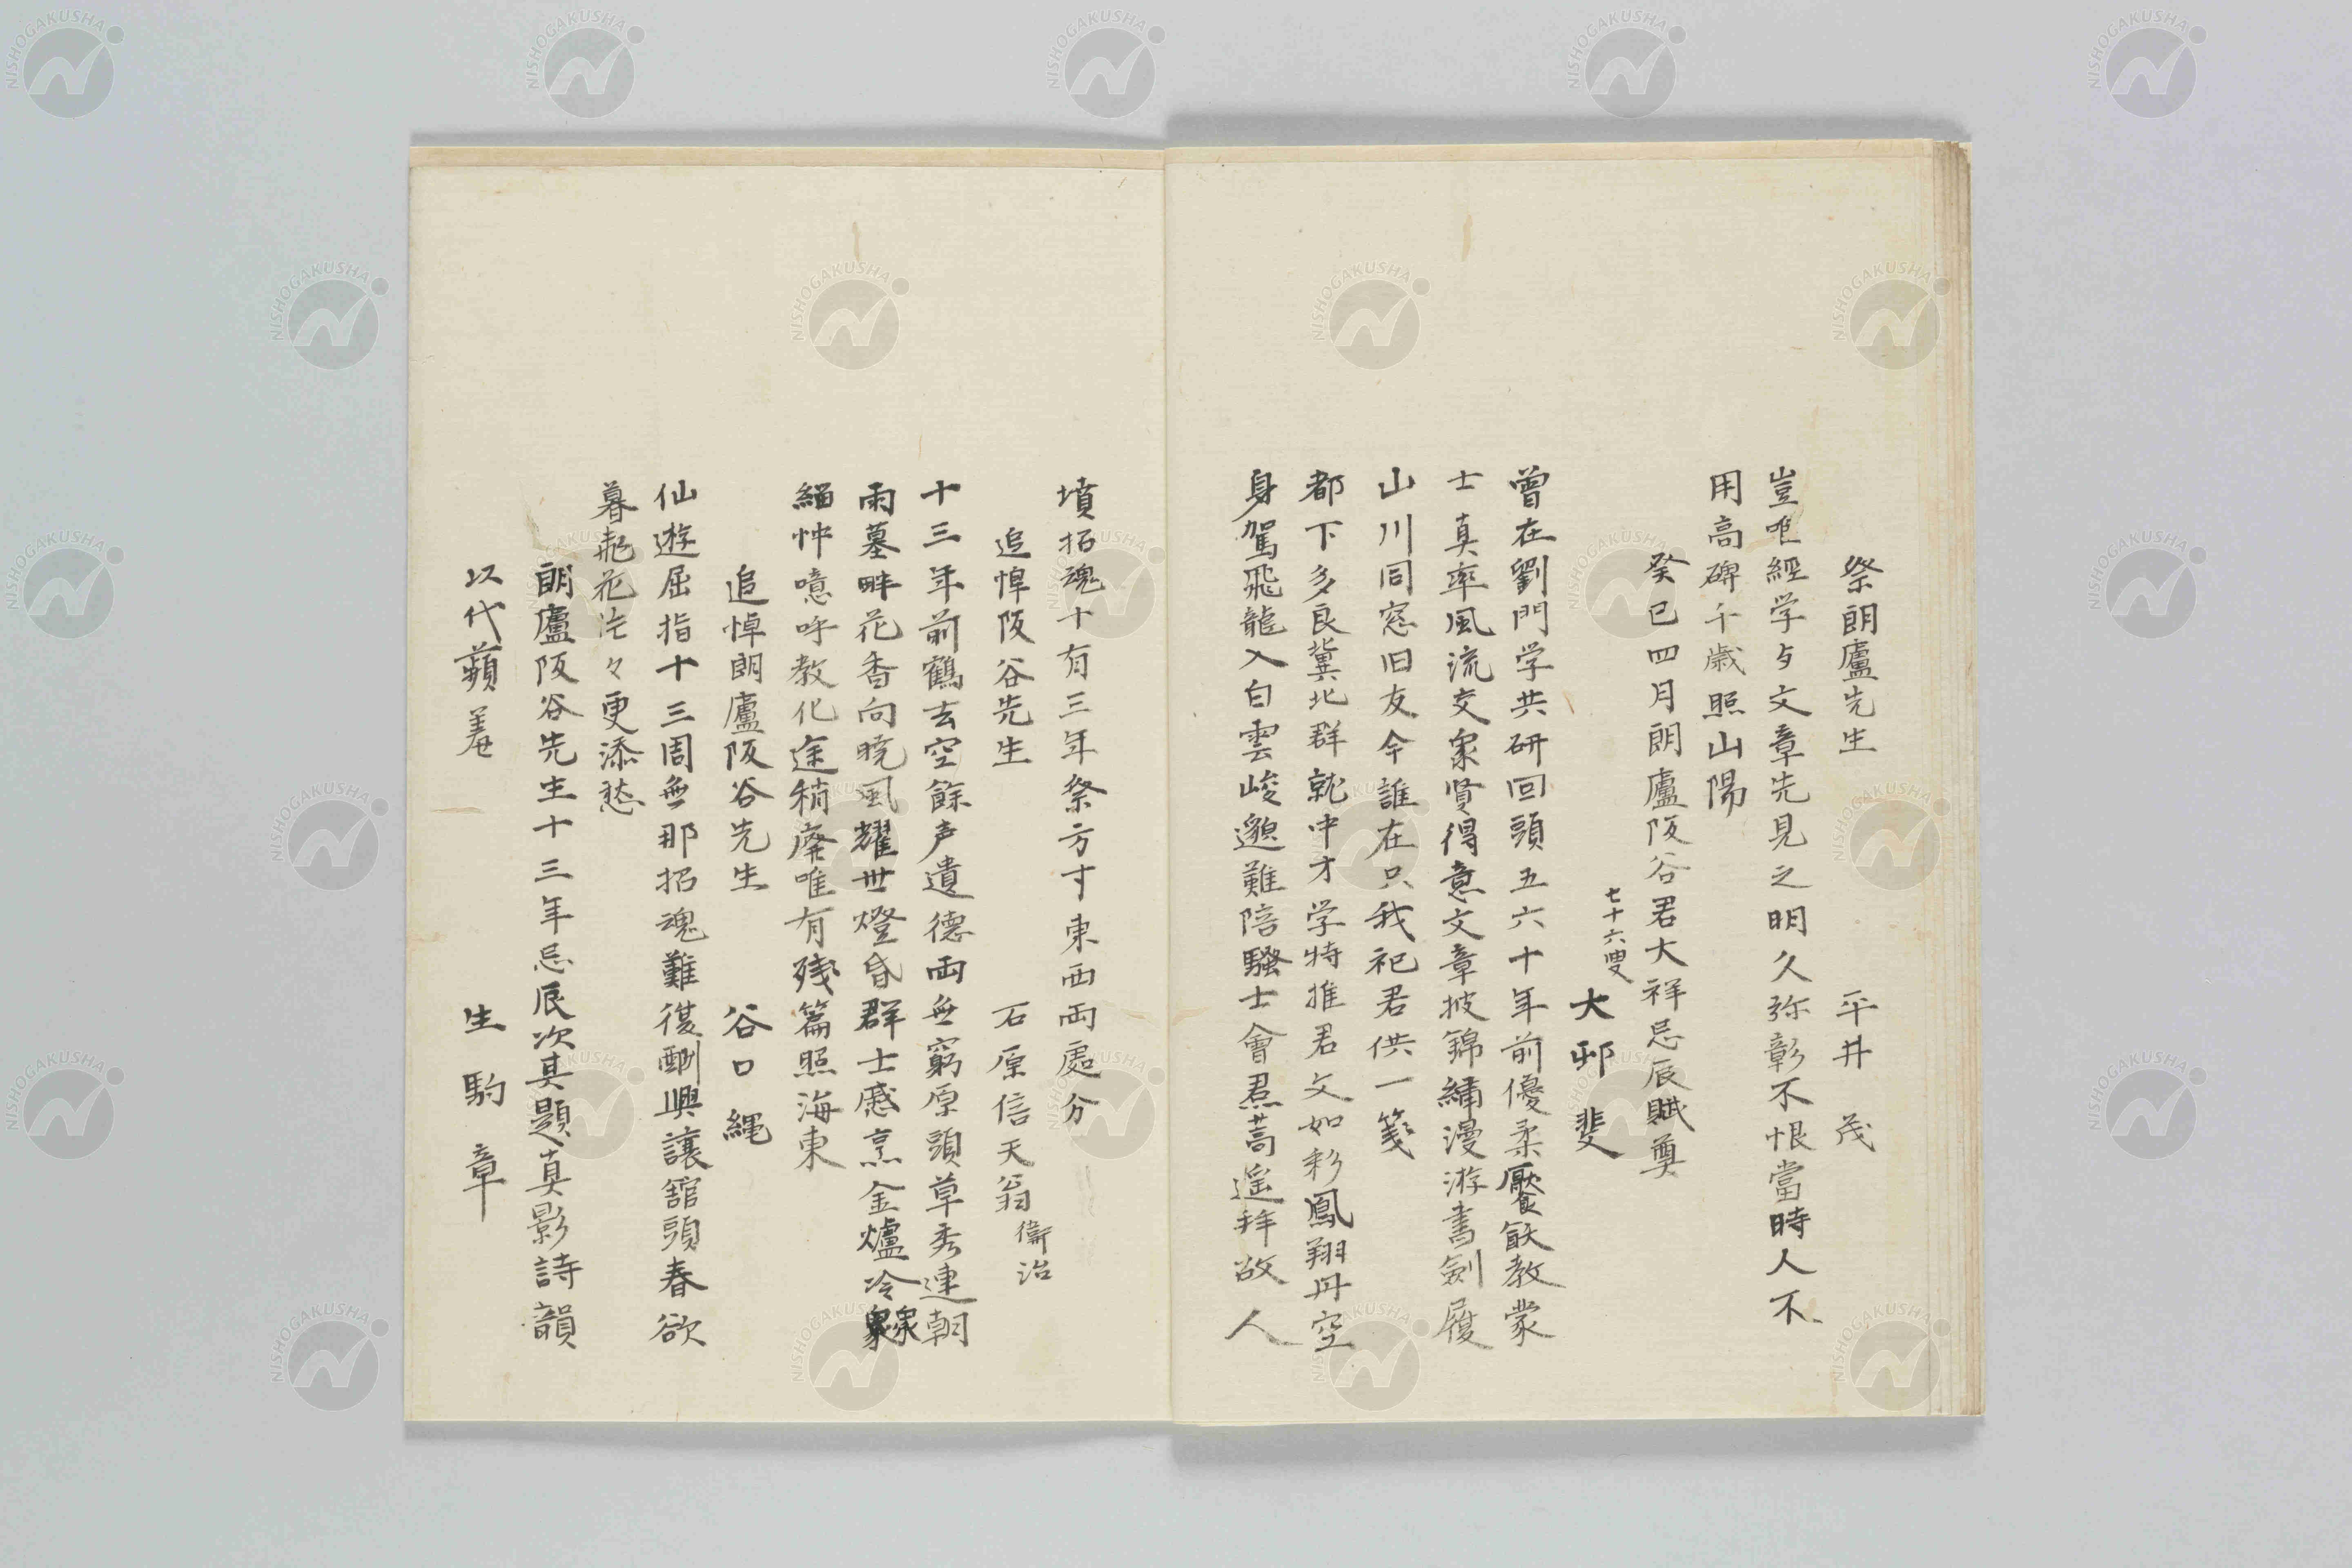 祭朗廬先生　平井茂
豈唯經学与文章先見之明久弥彰不恨當時人不
用高碑千歳照山陽
癸巳四月朗廬阪谷君大祥忌辰賦奠
七十六叟　大邨斐
曽在劉門学共研回頭五六十年前優柔饜飫教蒙
士真率風流交衆賢得意文章披錦繍漫游書劍履
山川同窓旧友今誰在只我祀君供一箋
都下多良冀北群就中才学特推君文如彩鳳翔丹空
身駕飛龍入白雲峻邈難陪騒士會焄蒿遥拝故人
墳招魂十有三年祭方寸東西両處分
追悼阪谷先生　石原信天翁衛治
十三年前鶴去空餘声遺德両無窮原頭草秀連朝
雨墓畔花香向晩風耀世燈昏群士慼烹金爐冷衆
緇忡噫呼教化途稍廃唯有残篇照海東
追悼朗廬阪谷先生　谷口縄
仙遊屈指十三周無那招魂難復酬興讓舘頭春欲
暮飛花片々更添愁
朗廬阪谷先生十三年忌辰次其題真影詩韻
以代蘋羞　生駒章
NISHOGAKUSHA